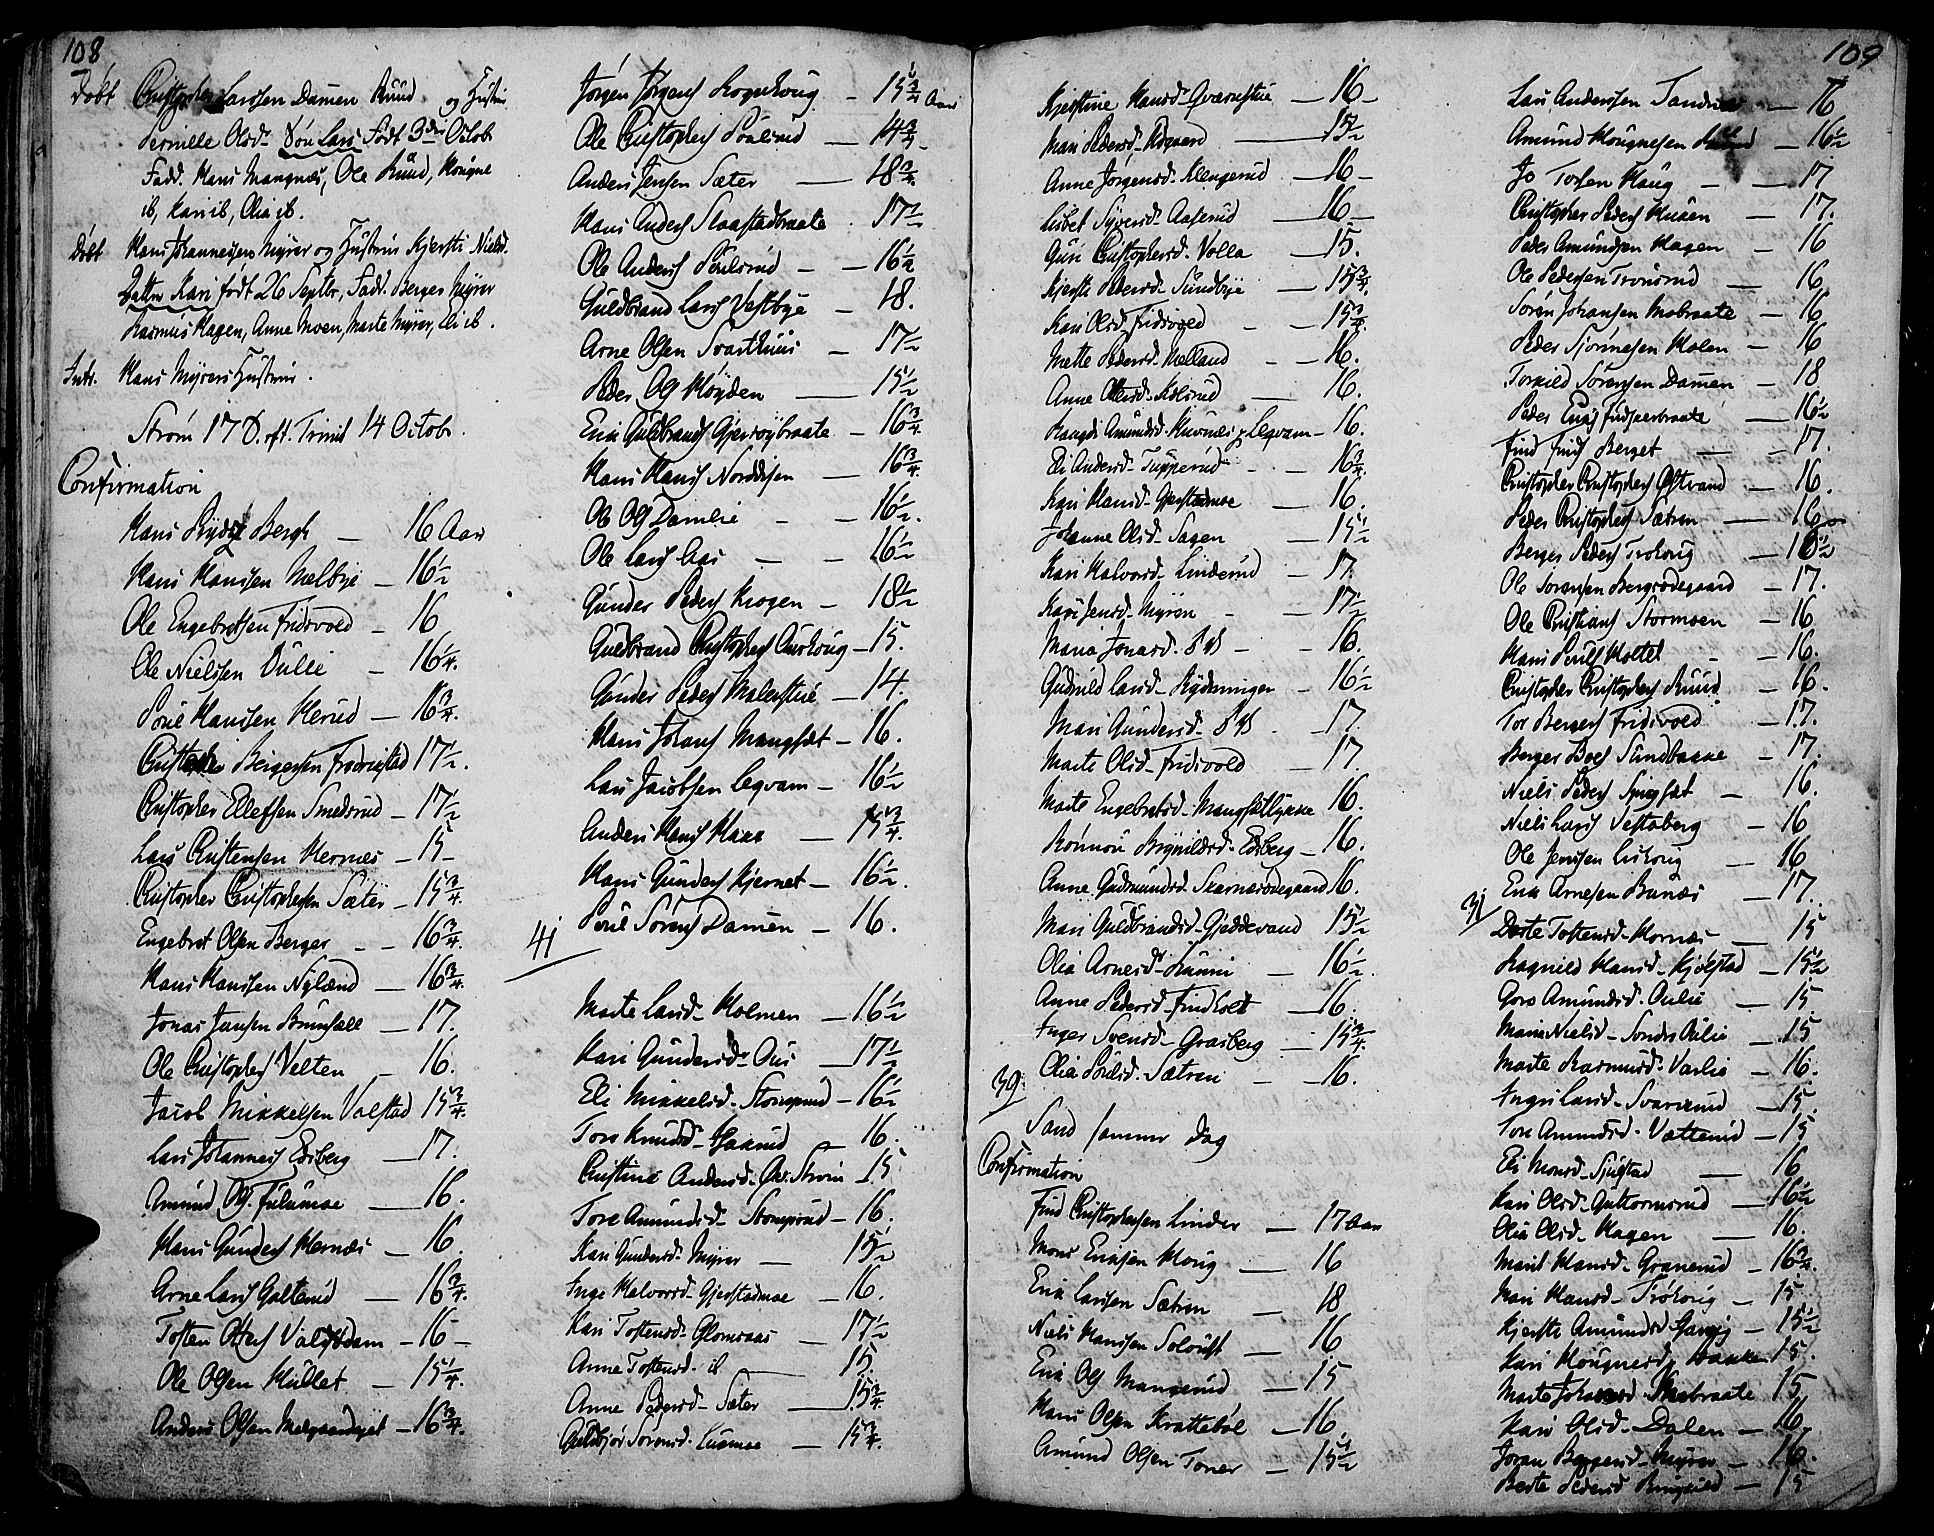 108
Döbt Christopher Larssen Damen Ruud og Hustru
Pernille Olsd. Søn Lars Født 3die Octob
Fadd. Hans Mangnæs, Ole Ruud, Mougne
ib, Kari ib, Olia ib.
Döbt Hans Johannesen Myrer og Hustrue Kjersti Nielsd.
Datter Kari født 26 Septbr, Fadd. Berger Myrer
Rasmus Hagen, Anne Moen, Marte Myrer, Eli ib.
Intr. Hans Myrers Hustrue.
Strøm 17 D. eft. Trinit 14 Octobr.
Confirmation
Hans Bergh — 16 Aar
Hans Hanssen Melbye — 16 1/2
Ole Engebretsen Fridsvold — 16
Ole Nielssen Dulie — 16 1/4.
Poul Hanssen Herud — 16 3/4.
Bergersen 17 1/2.
Christopher Ellefsen Smedsrud — 17 1/2
Lars Christensen Hernæs — 15 —
Christopher Christophersen Sæter — 15 3/4.
Engebret Olsen Berger — 16 3/4.
Hans Hanssen Nylænd — 16 3/4.
Jonas Jensen — 17.
Ole Christophers Velten — 16.
Jacob Mikkelsen Valstad 15 3/4.
Lars Johannes Edsberg — 17.
Amund Ols. Fulumoe — 16.
Hans Gunders Hernæs — 16.
Arne Lars Galterud — 16 3/4.
Tosten Otters — 16 —
Ole Olsen Hullet — 15 1/4.
Anders Olsen — 16 3/4.
Jörgen Jörgens — 15 3/4 Aar
Ole Christophers Poulsrud — 14 3/4
Anders Jensen Sæter — 18 3/4.
Hans Anders Slaastadbraate 17 1/2
Ole Anders Poulsrud — 16 1/2
Guldbrand Lars Vestbye — 18.
Arne Olsen Svarthuus — 17 1/2
Peder Ols Höyden — 15 1/2
Erik Guldbrands — 16 3/4.
Hans Hans Norddisen — 16 3/4
Ole Ols Damlie — 16 1/2.
Ole Lars Aas — 16 1/2
Gunder Peders Krogen — 18 1/2
Guldbrand Christophers — 15.
Gunder Peders Malerstue — 14.
Hans Johans Mangset — 16.
Lars Jacobsen Leqvam — 16 1/2
Anders Hans — 15 3/4.
Hans Gunders Kjernet — 16 1/2.
Poul Sörens Damen — 16.
41
Marte Larsd. Holmen — 16 1/2
Kari Gundersd. Ous — 17 1/2
Eli Mikkelsd. Stomperud — 16 1/2
Tore Knudsd. — 16.
Christine Andersd. Strøm 15
Tore Amundsd. Stomperud — 16.
Kari Gundersd. Myrer — 15 1/2
Inge Halvorsd. Gjerstadmoe — 16.
Kari Tostensd. Glomsaas — 17 1/2
Anne Tostensd. ib — 15
Anne Pedersd. Sæter — 15 3/4.
Guldbjør Sörensd. Lusmoe — 15 3/4.
109
Kjerstine Hansd. — 16 —
Mari Pedersd. — 15 1/2
Anne Jörgensd. Klengerud — 16 —
Lisbet Syversd. Aaserud — 16 —
Guri Christophersd. Volla — 15.
Kjersti Pedersd. Sundbye — 15 3/4.
Kari Olsd. Fridsvold — 15 3/4.
Mette Pedersd. Melland — 16.
Anne Olsd. — 16.
Amundsd. Leqvam — 16.
Eli Andersd. Tupperud — 16 3/4.
Kari Hansd. Gjerstadmoe — 16.
Johanne Olsd. Sagen — 15 1/2
Kari Halvorsd. Linderud — 17.
Kari Jensd. Myren — 17 1/2
Maria Jonasd. — 16.
Gudnild Larsd. Rydningen — 16 1/2
Mari Gundersd. — 17.
Marte Olsd. Fridsvold — 17.
Marte Engebretsd. 16.
Rönnou Brynildsd. Edsberg — 16.
Anne Gudmundsd. Skarnæsödegaard 16.
Mari Guldbrandsd. Gjeddevand 15 1/2
Olia Arnesd. — 16 1/2.
Anne Pedersd. Findholt — 16.
Inger Svensd. Grasberg — 15 3/4.
Olia Poulsd. Sætren — 16.
39
Sand samme Dag
Confirmation
Find Christophersen Linder — 17 Aar
Mons Eriksen Houg — 16
Erik Larssen Sætren — 18
Niels Hanssen — 16.
Erik Ols Mangerud — 15
Hans Olsen Krattebøl — 16.
Amund Olsen Toner — 15 1/2
Lars Anderssen — 16
Amund Mougnesen — 16 1/2
Jo Tosten Haug — 17
Christopher Peders Husen — 17.
Peder Amundsen Hagen — 16
Ole Pedersen Tronsrud — 16
Sören Johansen Mobraate — 16
Peder Holen — 16
Torkild Sörensen Damen — 18
Peder — 16 1/2
Find Finds Berget — 17.
Christopher Christophers Østvand — 16.
Peder Christophers Sætren — 16
Berger Peders — 16 1/2
Ole Sörensen — 17.
Ole Christians Stormoen — 16
Hans Pouls Holtet — 16.
Christopher Christophers Ruud — 16.
Tor Bergers Fridsvold — 17.
Berger Boes Sundbakke — 17.
Niels Peders — 16.
Niels Lars Vestaberg — 16
Ole Jenssen — 16
Erik Arnesen — 17.
31
Dorte Tostensd. Hornæs — 15
Ragnild Hansd. Kjölstad — 15 1/2
Goro Amundsd. Aulie — 15
Maria Nielsd. Sondre Aulie — 15
Marte Rasmusd. Varlie — 16.
Inger Larsd. — 15.
Tore Amundsd. Vætterud — 15
Eli Monsd. Sjulstad — 16
Kari Olsd. Guttormsrud — 16 1/2
Olia Olsd. Hagen — 16.
Marit Hansd. Granerud — 16 3/4.
Mari Hansd. — 15
Kjersti Amundsd. — 15 1/2
Kari Mougnesd. Bakken 15.
Marte Mobraate 15
Kari Olsd. Dalen — 16.
Joran Bergersd. Myrer — 16.
Berte Pedersd. — 15